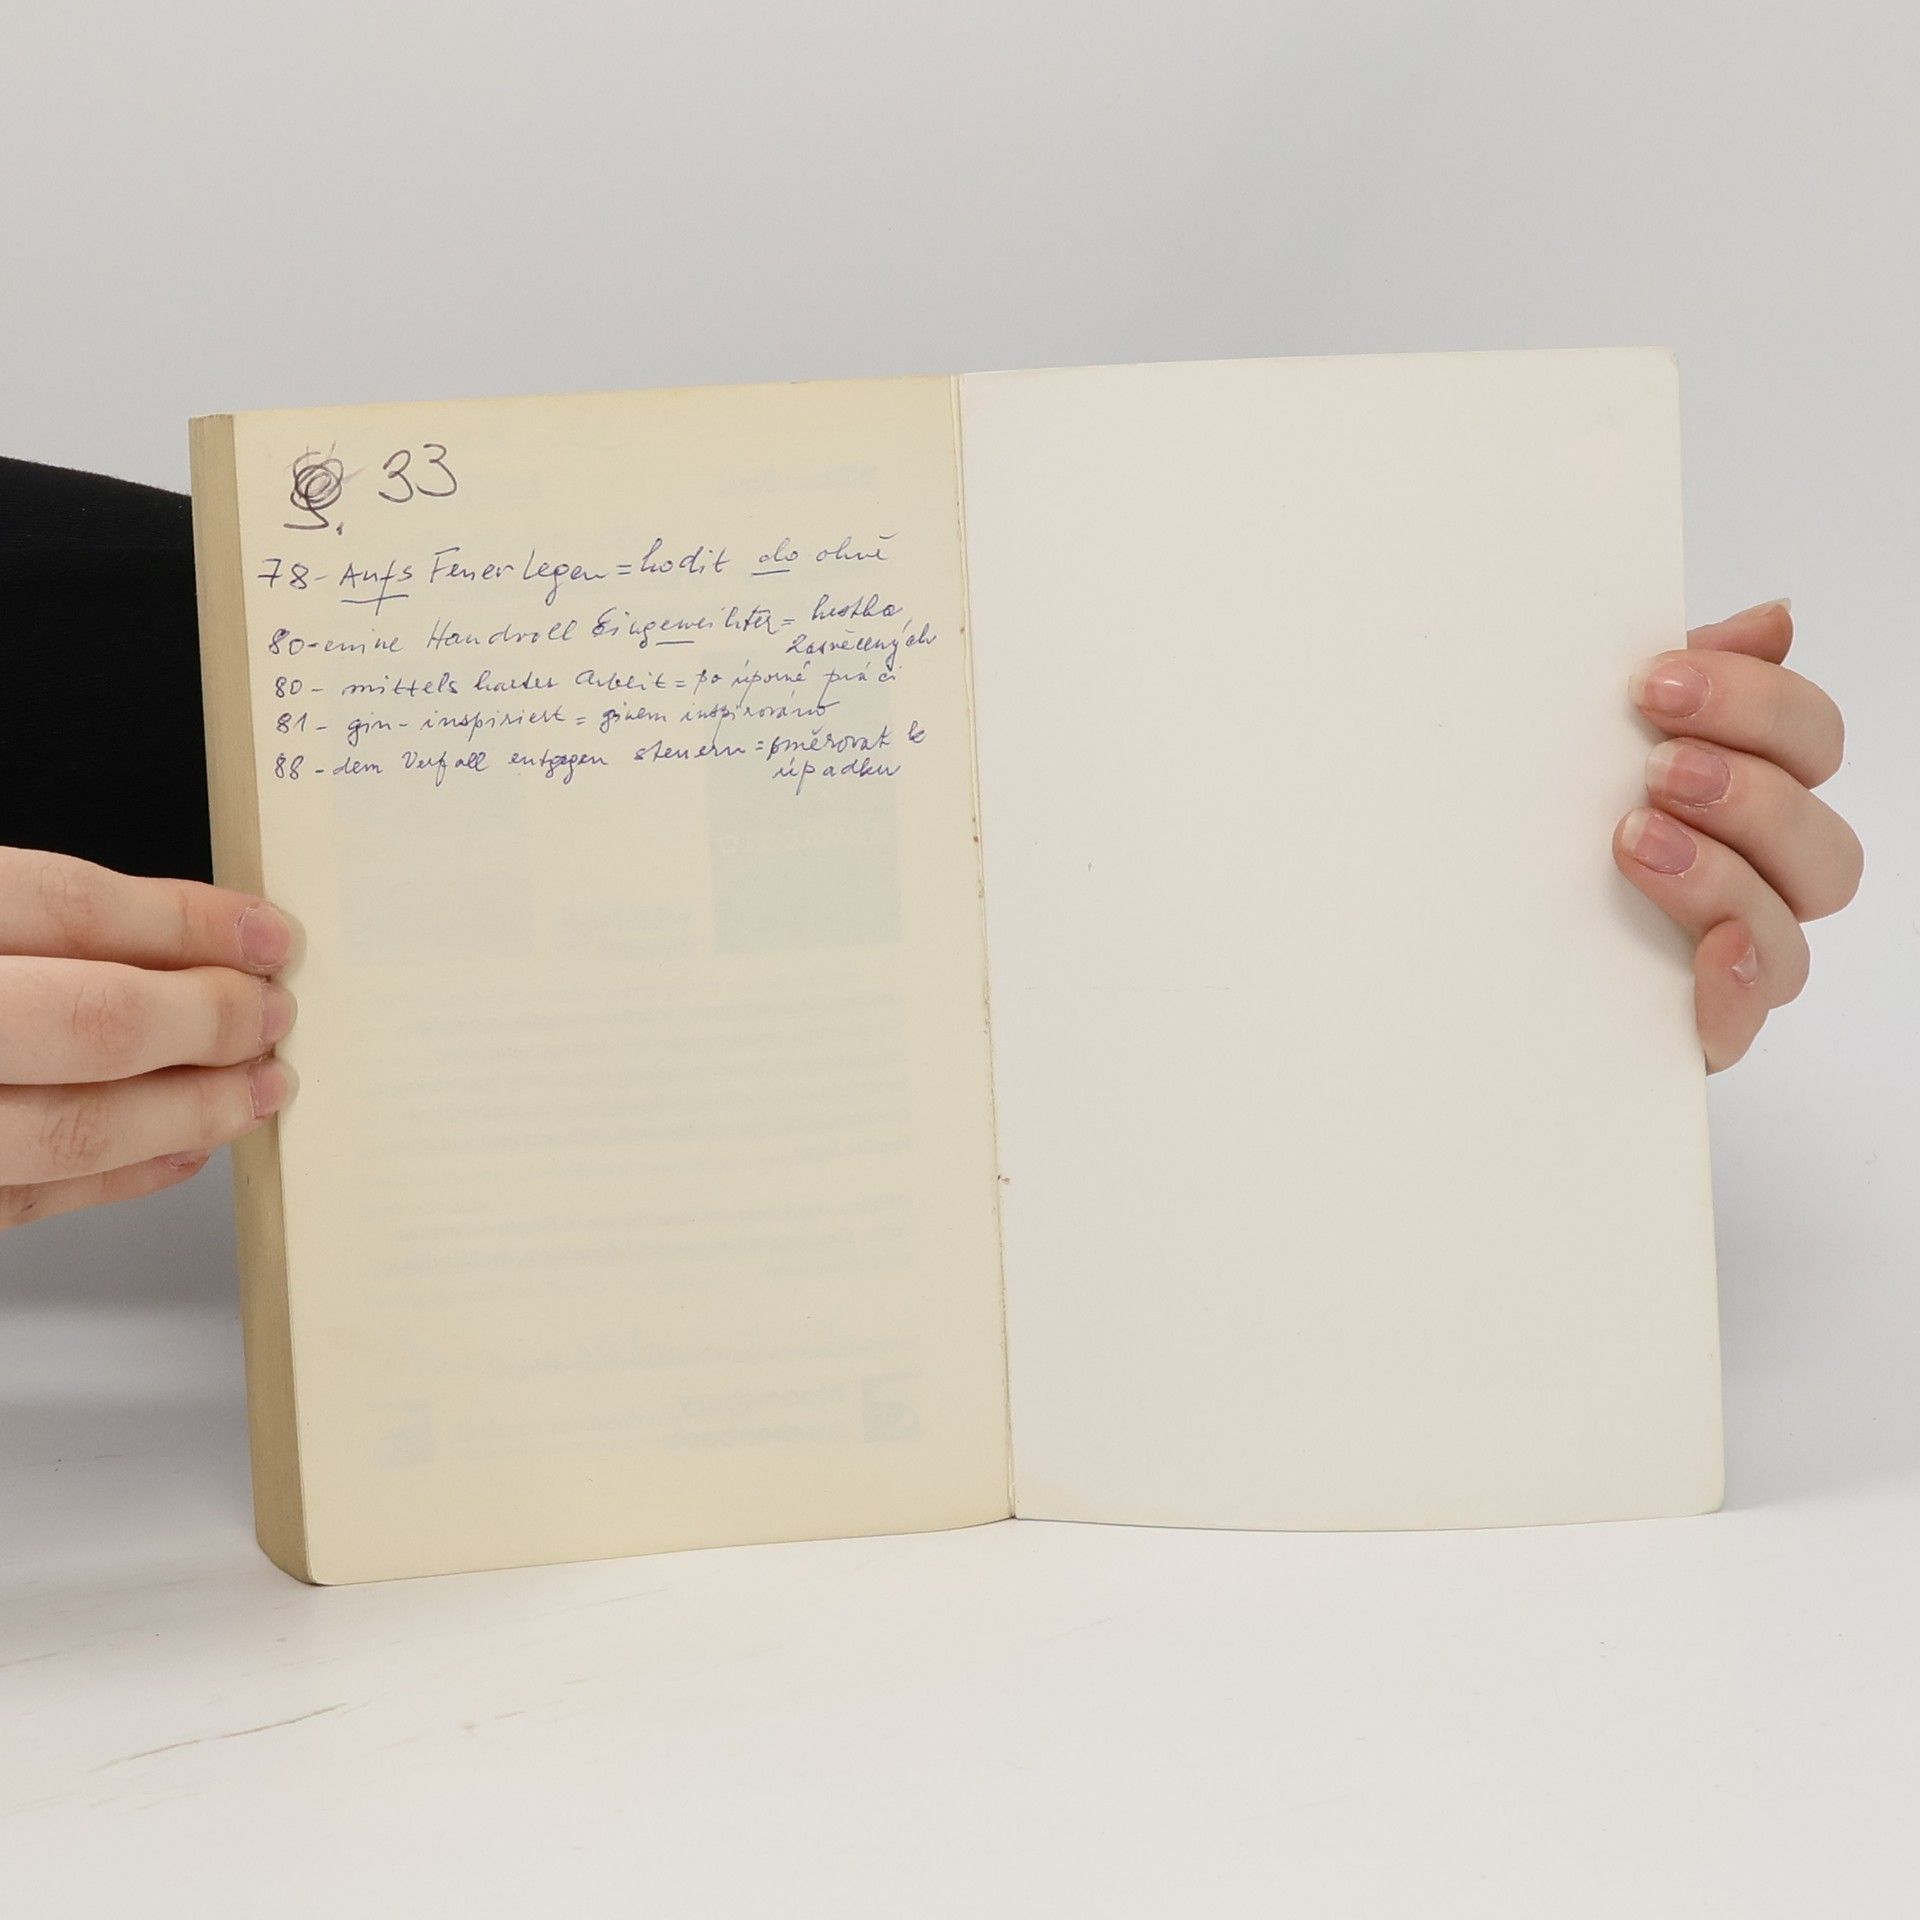 S. 33
78 - Aufs Feuer legen = hodit do ohně
80 - eine Handvoll Eingeweihter = hrstka
zasvěcených
80 - mittels harter Arbeit = po úporné práci
81 - gin-inspiriert = ginem inspirováno
88 - dem Verfall entgegen steuern = směrovat k
úpadku